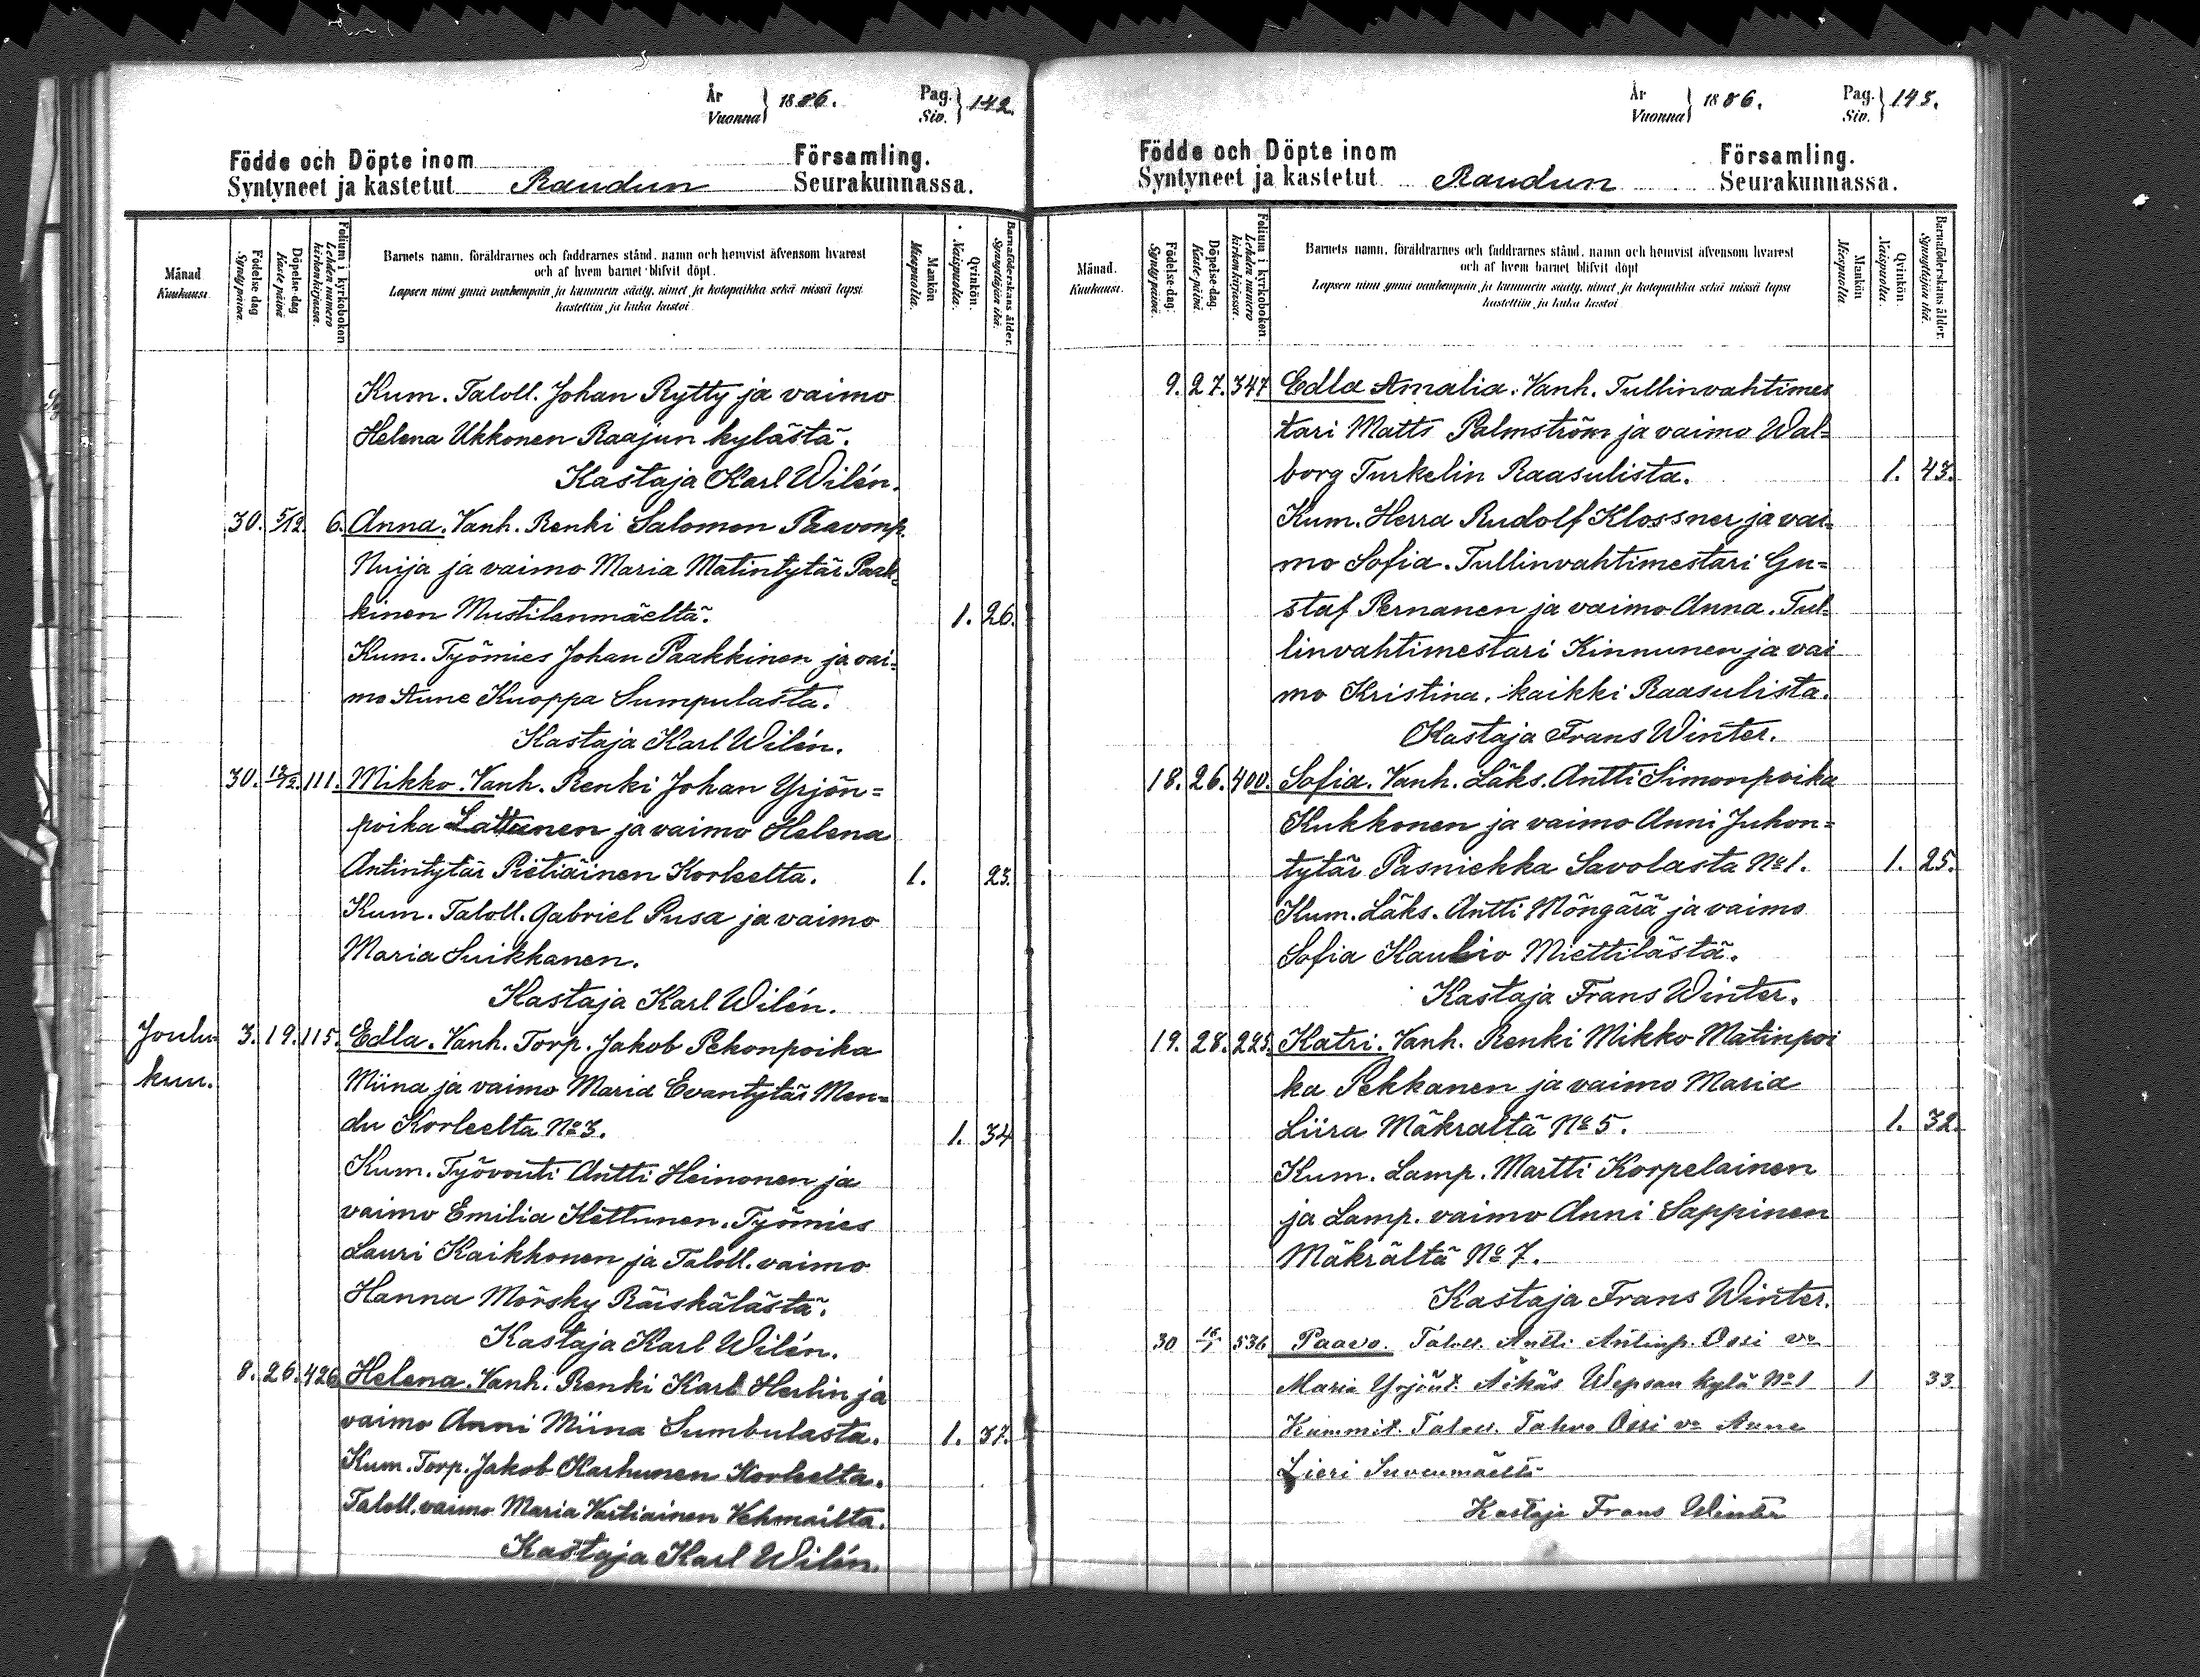 År
Vuonna } 1886.
Pag.
Siv. } 142.
Födde och Döpte inom Församling.
Syntyneet ja kastetut Raudun Seurakunnassa.
Månad
Kuukausi.
Födelse dag
Syntypäivä.
Döpelse-dag
Kaste päivä
Folium i kyrkoboken
Lehden numero
kirkonkirjassa.
Barnets namn, föräldrarnes och faddrarnes stånd, namn och hemvist äfvensom hvarest
och af hvem barnet blifvit döpt.
Lapsen nimi ynnä vanhempain ja kummein sääty, nimet ja kotopaikka sekä missä lapsi
kastettiin ja kuka kastoi
Mankön
Miespuolia.
Qvinkön.
Naispuolia.
Barnaföderskans ålder.
Synnyttäjän ikä.
Kum. Taloll. Johan Rytty ja vaimo
Helena Ukkonen Raajun kylästä.
Kastaja Karl Wilén.
30. 5/12. 6. Anna. Vanh. Renki Salomon Paavonp.
Nuija ja vaimo Maria Matintytär Paak-
kinen Mustilanmäeltä. 1. 26.
Kum. Työmies Johan Paakkinen ja vai-
mo Aune Kuoppa Sumpulasta.
Kastaja Karl Wilén.
30. 12/12. 111. Mikko. Vanh. Renki Johan Yrjön=
poika Lattunen ja vaimo Helena
Antintytär Pietiäinen Korleelta. 1. 23.
Kum. Taloll. Gabriel Pusa ja vaimo
Maria Suikkanen.
Kastaja Karl Wilén.
Joulu 3. 19. 115. Edla. Vanh. Torp. Jakob Pekonpoika
kuu. Miina ja vaimo Maria Evantytär Men=
du Korleelta No 3. 1. 34
Kum. Työvouti Antti Heinonen ja
vaimo Emilia Hettunen. Työmies
Lauri Kaikkonen ja Taloll. vaimo
Hanna Mörsky Räiskälästä.
Kastaja Karl Wilén.
8. 26. 426. Helena. Vanh. Renki Karl Herlin ja
vaimo Anni Miina Sumbulasta. 1. 37.
Kum. Torp. Jakob Karhunen Korleelta.
Taloll. vaimo Maria Vartiainen Vehmailta.
Kastaja Karl Wilén.
År
Vuonna } 1886.
Pag.
Siv. } 143.
Födde och Döpte inom Församling.
Syntyneet ja kastetut Raudun Seurakunnassa.
Månad.
Kuukausi.
Födelse-dag.
Syntypäivä.
Döpelse-dag.
Kaste päivä.
Folium i kyrkoboken.
Lehden numero
kirkonkirjassa.
Barnets namn, föräldrarnes och faddrarnes stånd, namn och hemvist äfvensom hvarest
och af hvem barnet blifvit döpt
Lapsen nimi ynnä vanhempain ja kummein sääty, nimet ja kotopaikka sekä missä lapsi
kastettiin ja kuka kastoi
Mankön
Miespuolia
Qvinkön.
Naispuolia.
Barnaföderskans ålder.
Synnyttäjän ikä.
9. 27. 347 Edla Amalia. Vanh. Tullinvahtimes
tari Matts Palmström ja vaimo Wal=
borg Turkelin Raasulista. 1. 43.
Kum. Herra Rudolf Klossner ja vai-
mo Sofia. Tullinvahtimestari Gu=
staf Pernanen ja vaimo Anna. Tul-
linvahtimestari Kinnunen ja vai
mo Kristina, kaikki Raasulista.
Kastaja Frans Winter.
18. 26. 400. Sofia. Vanh. Läks. Antti Simonpoika
Kukkonen ja vaimo Anni Juhon=
tytär Pasniekka Savolasta No 1. 1. 25.
Kum. Läks. Antti Möngärä ja vaimo
Sofia Miettilästä.
Kastaja Frans Winter.
19. 28. 225. Katri. Vanh. Renki Mikko Matinpoi
ka Pekkanen ja vaimo Maria
Liira Mäkraltä No 5. 1. 32.
Kum. Lamp. Martti Korpelainen
ja Lamp. vaimo Anni Sappinen
Mäkrältä No 7.
Kastaja Frans Winter.
30 536 Paavo. Taloll. Antti Antinp. Ossi vo
Maria Yrjönt. Äikäs Wepsan kylä No 1 1 33.
Kummit. Taloll. Tahvo Ossi vo Anne
Lieri Suvenmäeltä
Kastaja Frans Winter